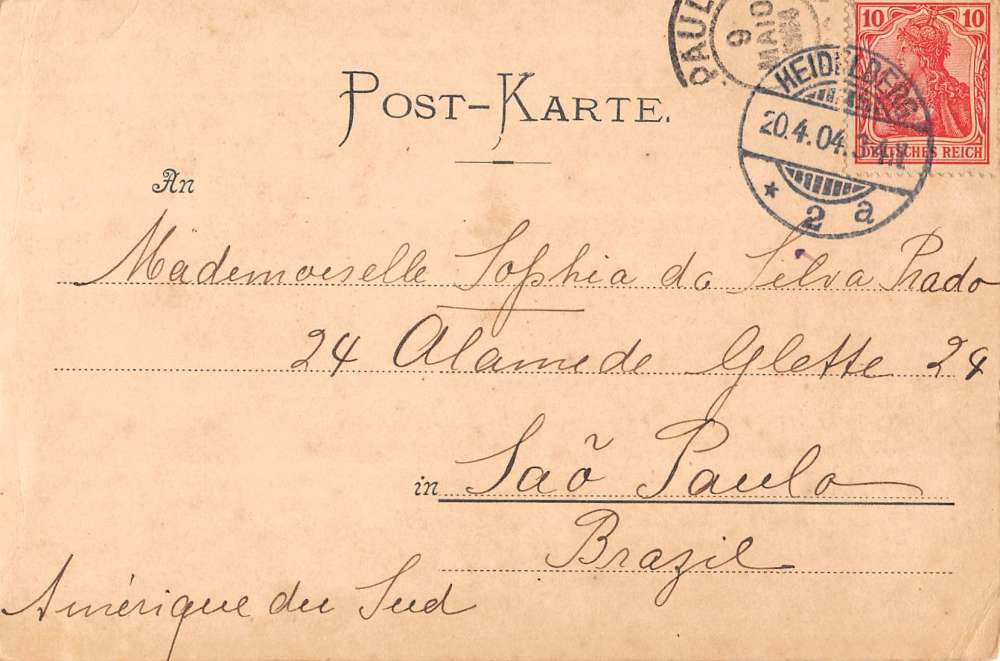 PAUL
9
MAIO
10 10
DEUTSCHES REICH
HEIDELBERG
20.4.04.
* 2 a
POST-KARTE.
An
Mademoiselle Sophia da Silva Prado
24 Alamede Glette 24
in Saõ Paulo
Brazil
Amérique du Sud